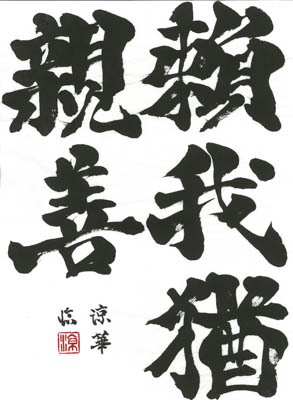 賴我猶
親善
涼華
臨